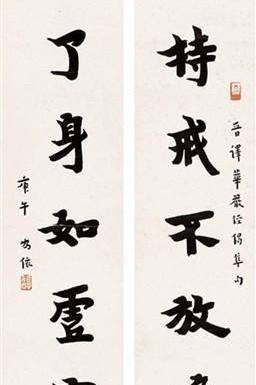 晉譯華嚴經偈集句
持戒不放
了身如虛
庚午